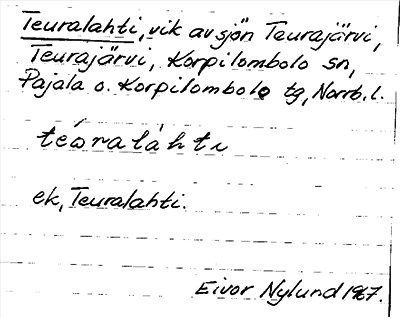 Teuralahti, vik av sjön Teurajärvi,
Teurajärvi, Korpilombolo sn,
Pajala o. Korpilombolo tg, Norrb. l.
ek, Teuralahti.
Eivor Nylund 1967.